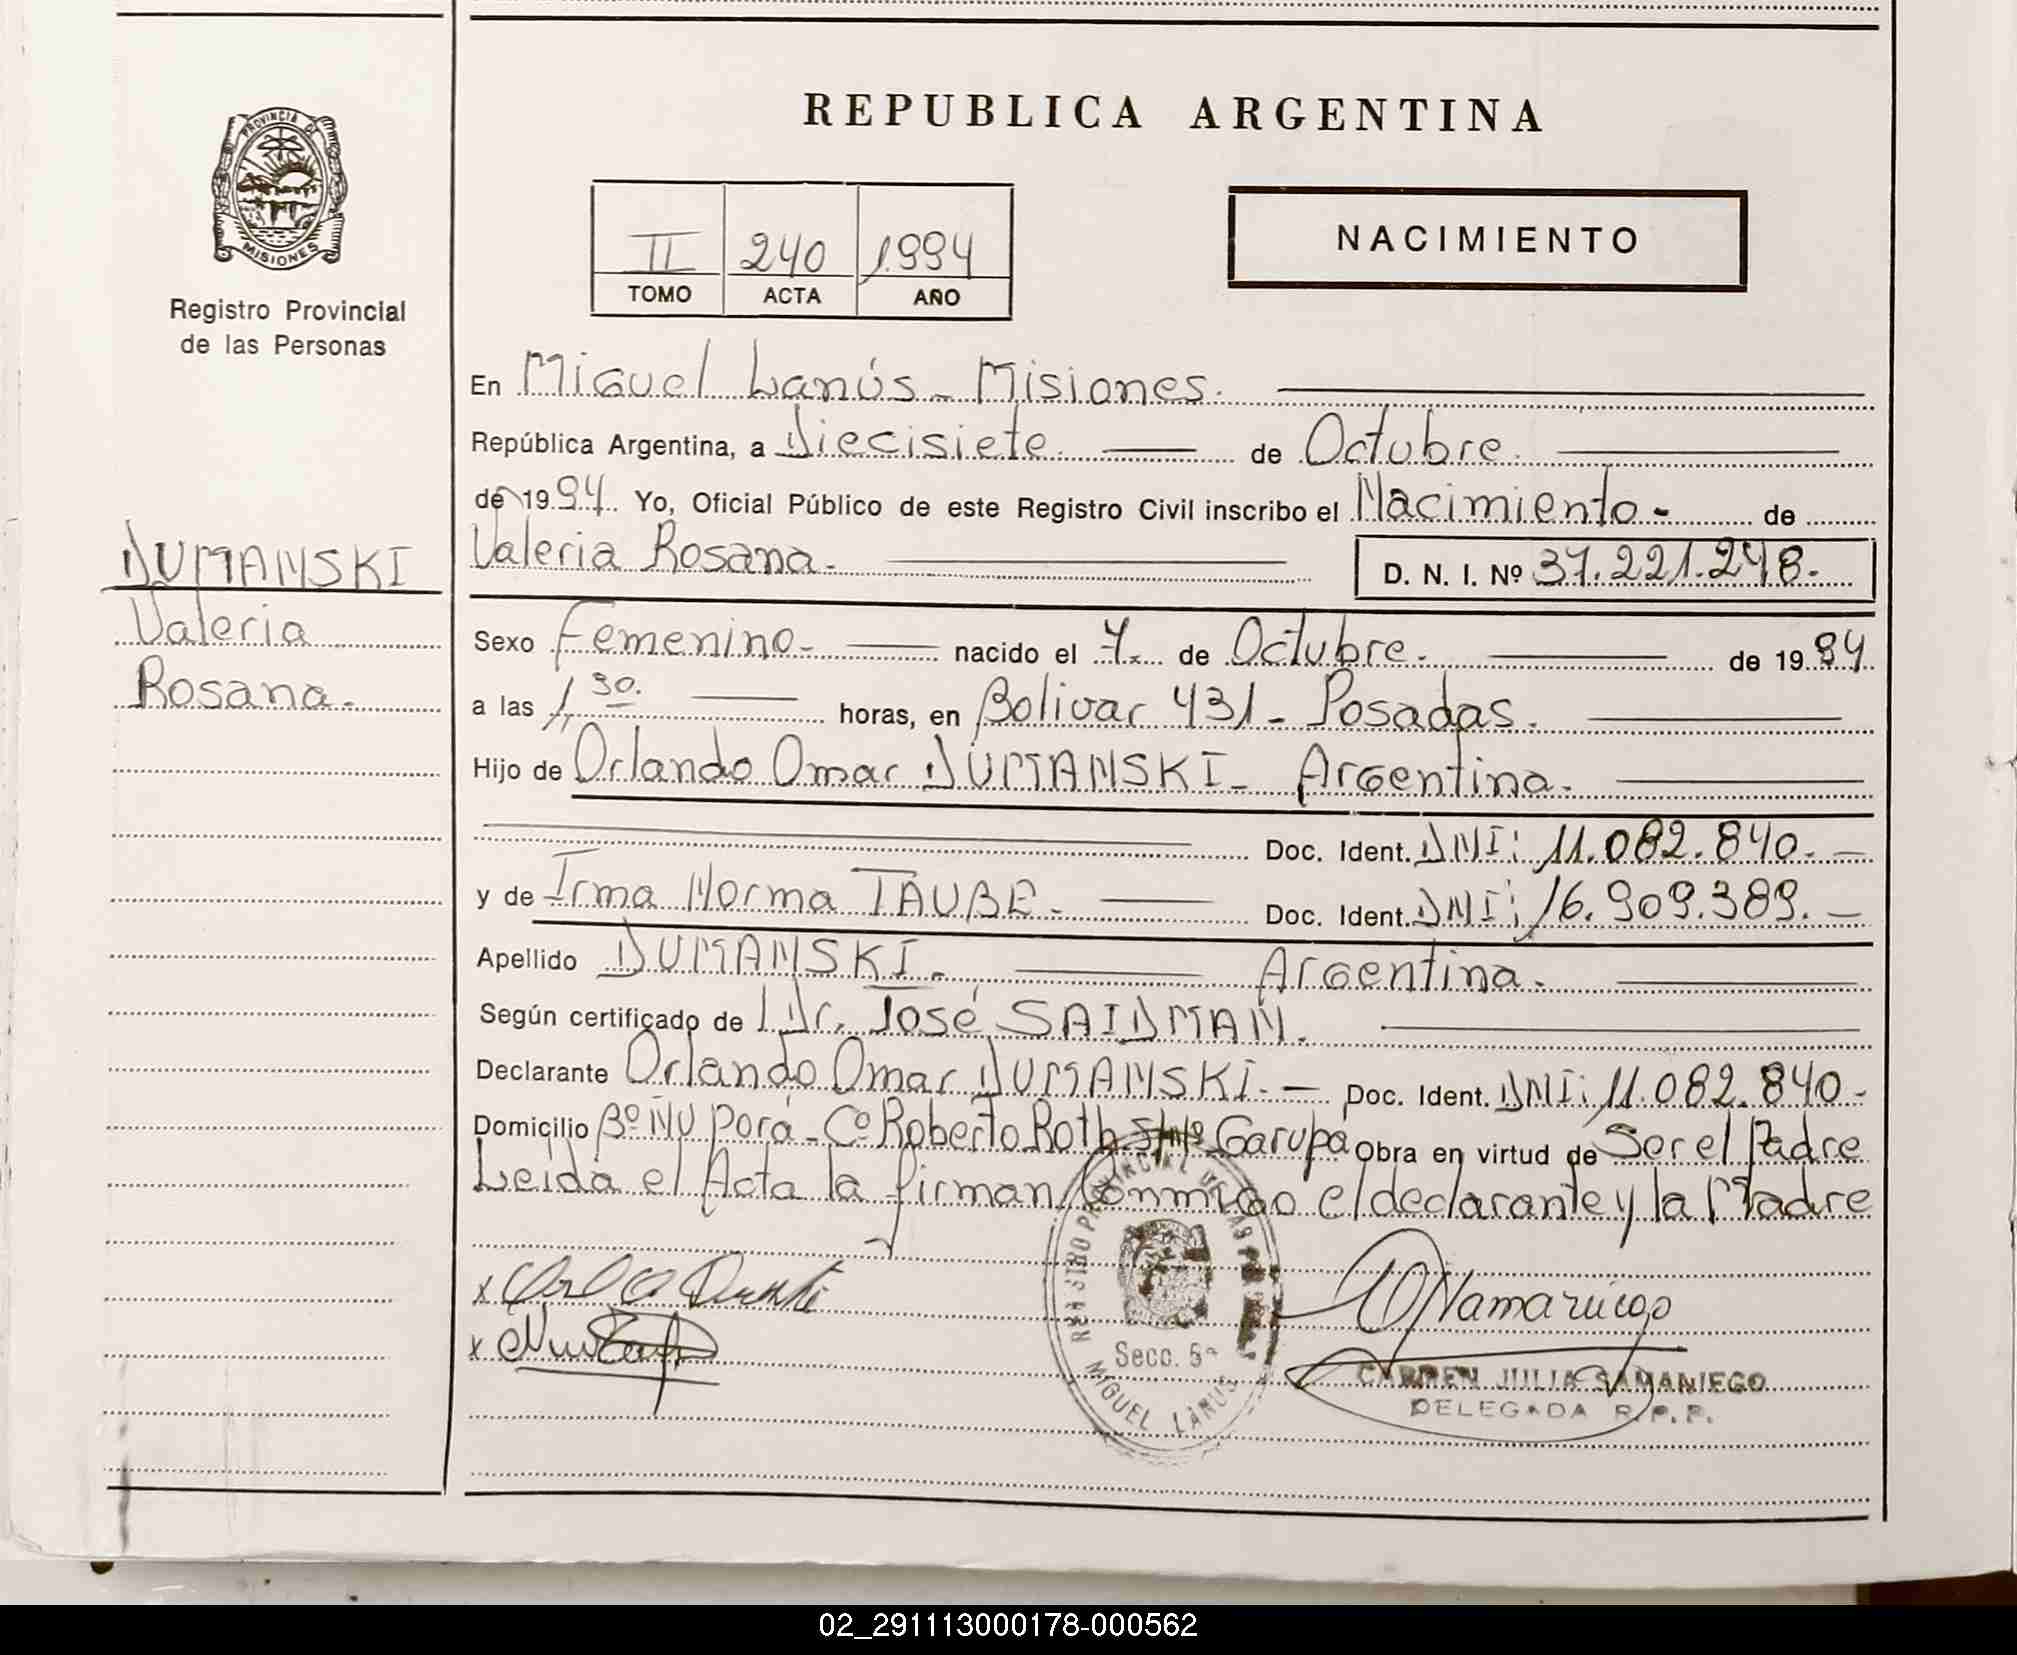 REPUBLICA ARGENTINA
PROVINCIA DE
MISIONES
Registro Provincial
de las Personas
II 240 1994
TOMO ACTA AÑO
NACIMIENTO
En Miguel Lanús - Misiones.
República Argentina, a Diecisiete. de Octubre.
de 1994. Yo, Oficial Público de este Registro Civil inscribo el Nacimiento - de
Valeria Rosana. D. N. I. Nº 37.221.248.
DUMANSKI
Valeria
Rosana.
Sexo Femenino. nacido el 7. de Octubre. de 1994
a las 1,30. horas, en Bolivar 431 - Posadas.
Hijo de Orlando Omar DUMANSKI - Argentina.
Doc. Ident. DNI: 11.082.840.
y de Irma Norma TAUBE. Doc. Ident. DNI: 16.909.389.
Apellido DUMANSKI. Argentina.
Según certificado de Dr. José SAIDMAN.
Declarante Orlando Omar DUMANSKI. Doc. Ident. DNI: 11.082.840.
Domicilio Bº Ñu Porá - Cº Roberto Roth S/Nº Garupá Obra en virtud de Ser el Padre
Leída el Acta la firman Conmigo el declarante y la Madre
REGISTRO PROVINCIAL DE LAS
Secc. 5ª
MIGUEL LANUS
CARMEN JULIA SAMANIEGO
DELEGADA R.P.P.
02_291113000178-000562